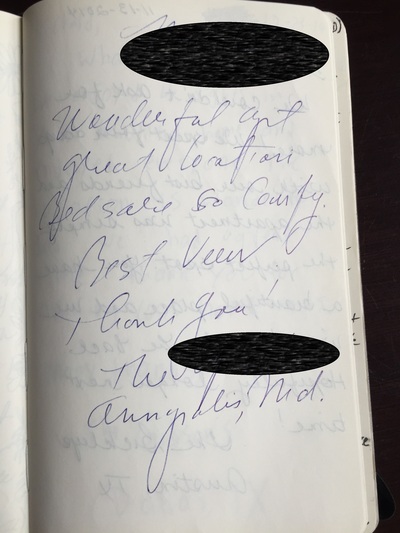 Wonderful apt
great location
Beds are so Comfy.
Best View
Thank You!
The
Annapolis, Md.